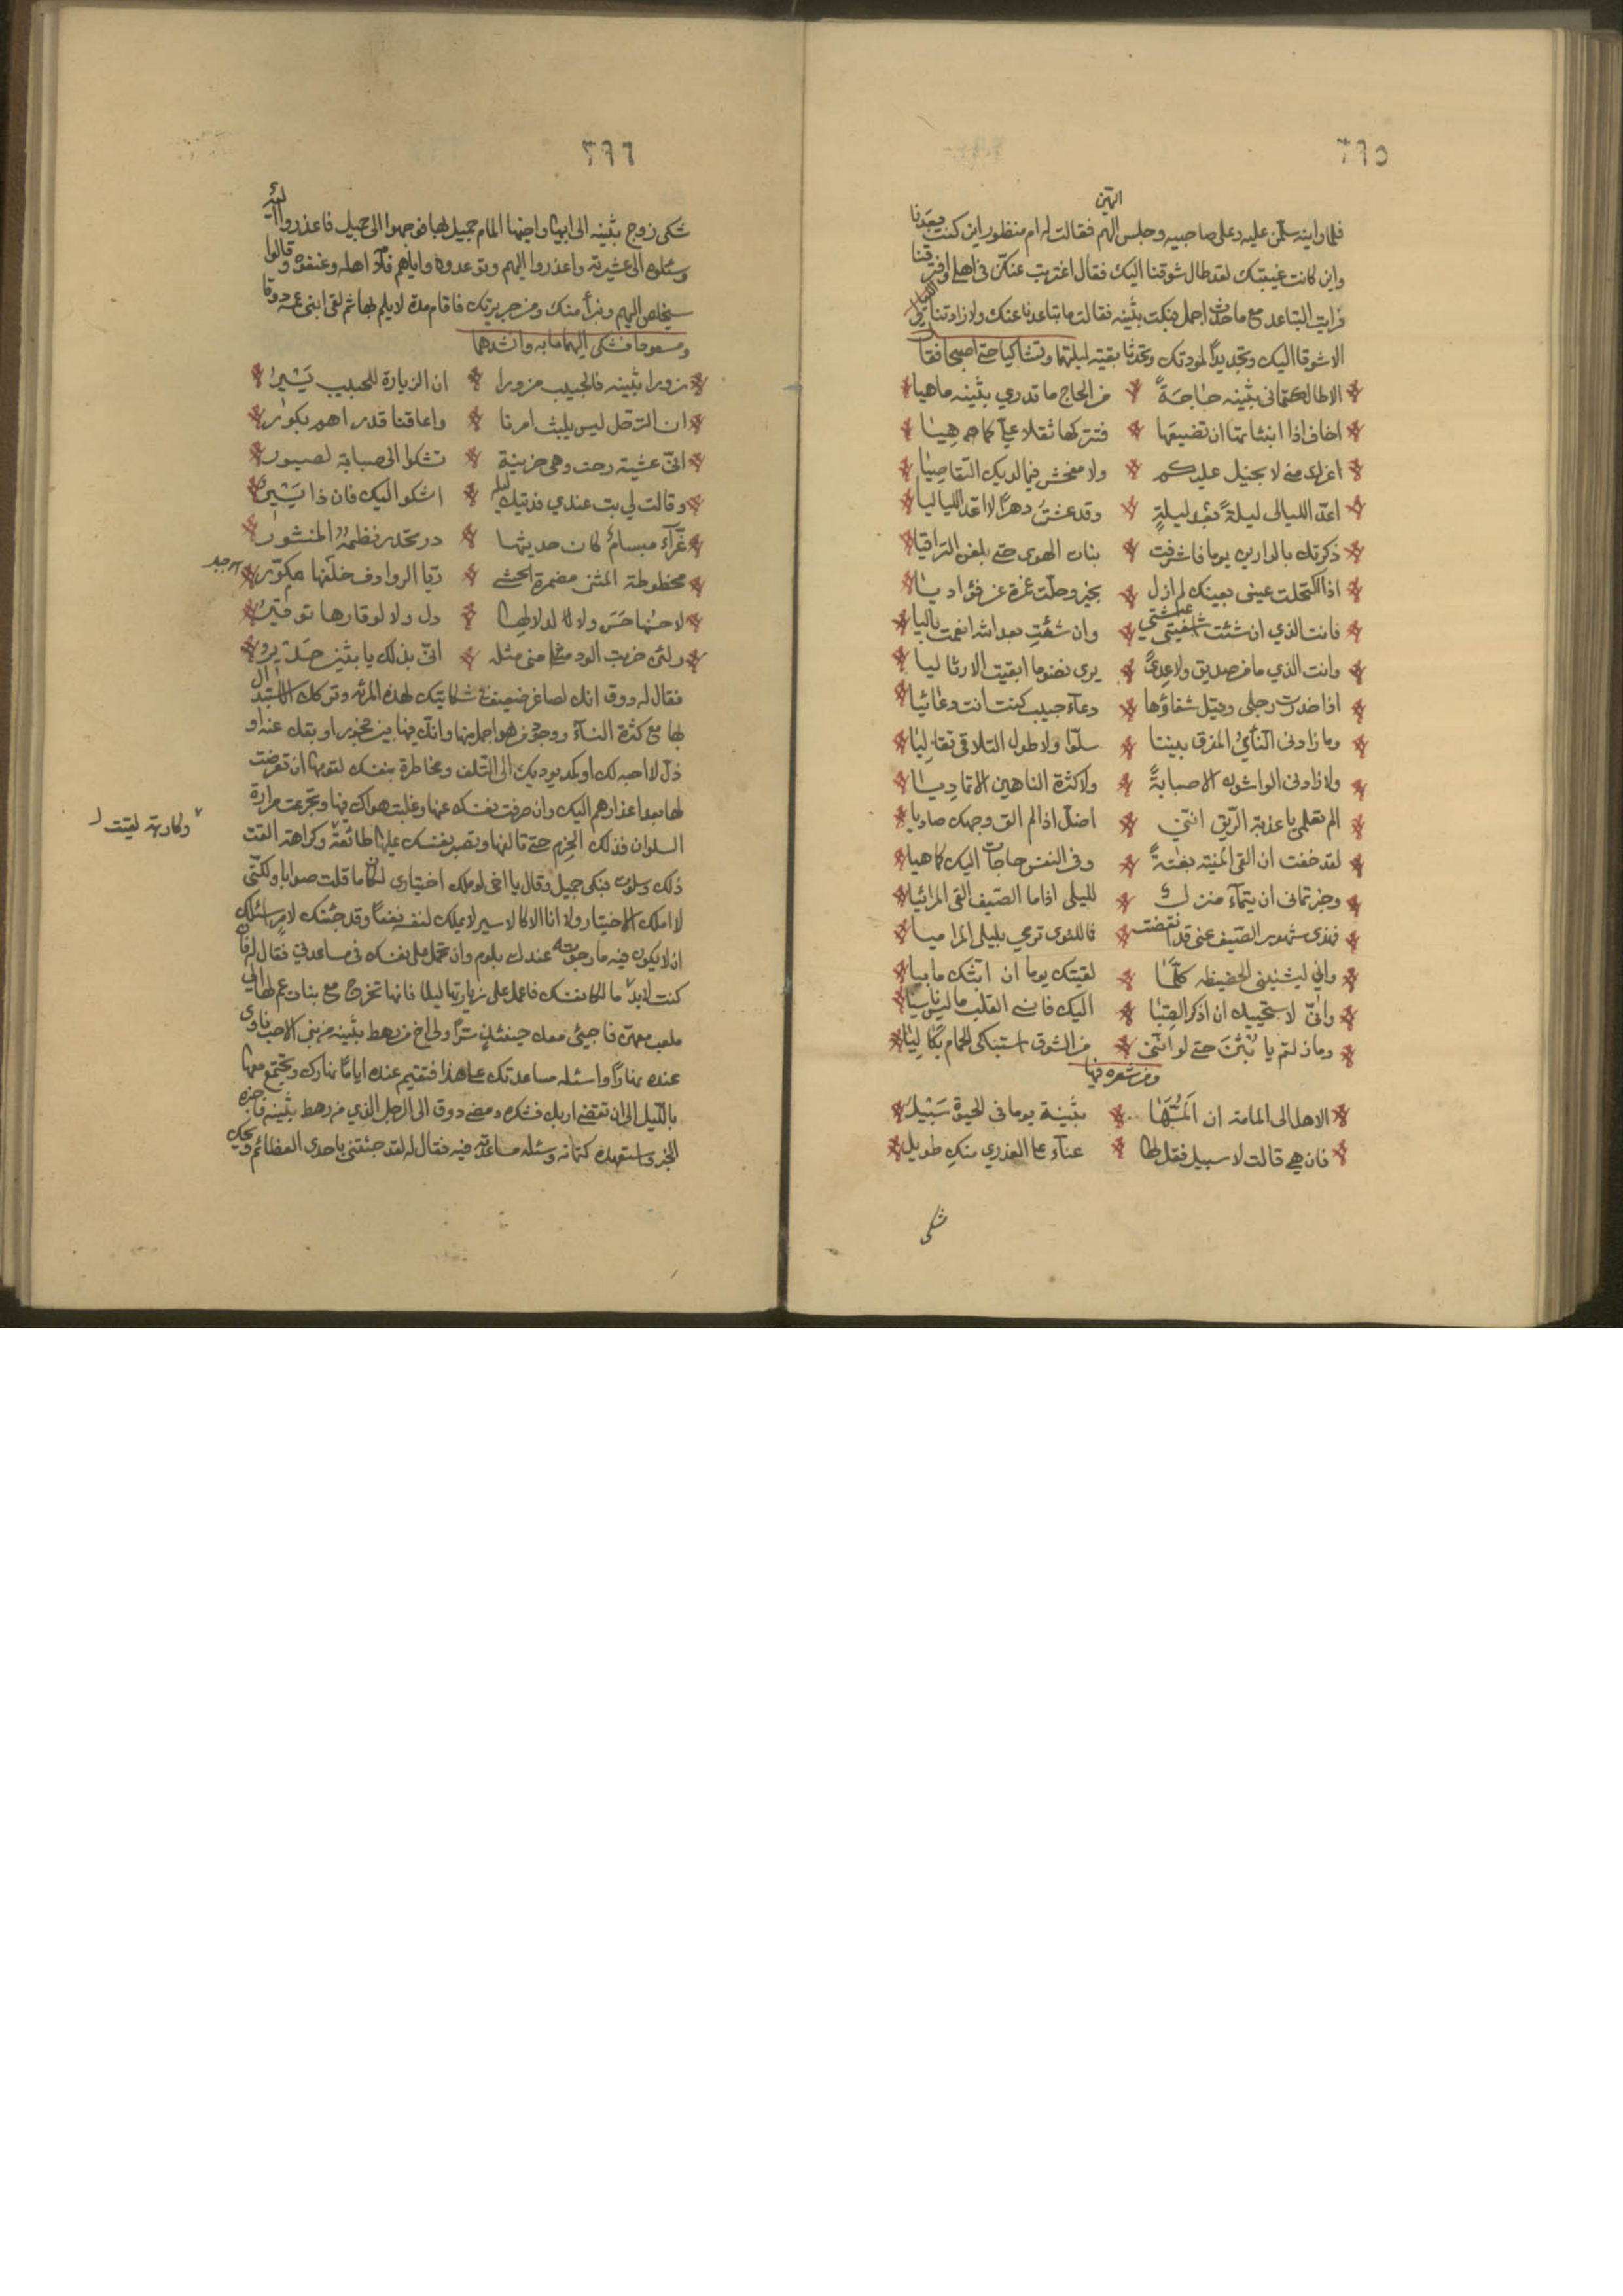 ٣٦٥
اليهن
فلما راينه سلمن عليه وعلى صاحبيه وجلس اليهم فقالت له ام منظور اين كنت بعدنا
واين كانت غيبتك لقد طال شوقنا اليك فقال اغتربت عنكن في اهلي
التباعد مع ما حدث اجمل فبكت بثينه فقالت ما تباعدنا عنك ولا زادتنا
الا شوقا اليك وتجديداً لمودتك وتحدثا بقية ليلتهما وتشاكيا حتى اصبحا فقال
الا طال كتماني بثينه حاجةً من الحاج ما تدري بثينه ماهيا
اخاف اذا انبئاتها ان تضيعها فتتركها ثقلا عليّ كما هيا
اعد الليالى ليلةً بعد ليلةٍ وقد عشت دهرًا لا اعد اللياليا
ذكرتك يوما فاشرفت بنات الهوى حتى بلغن التراقيا
اذا اكتحلت عيني بعينك لم ازل بخير وجلت غمرة عن فؤاديا
فانت الذي ان شئت عيشتي وان شئت بعد الله انعمت باليا
وانت الذي ما من صديق ولا عدىً يرى نضو ما ابقيت الا رثا ليا
اذا خدرت رجلي وقيل شفاؤها دعاء حبيب كنت انت دعائيا
وما زادني النأي المفرق بيننا سلوا ولا طول التلاقي تقاليا
ولا زادني الواشون الا صبابةً ولا كثرة الناهين الا تماديا
الم تعلمي يا عذبة الريق انني اضل اذا لم الق وجهك صاديا
لقد خفت ان القى المنية بغتةً وفي النفس حاجات اليك كما هيا
وخبرتماني ان تيماء منزل لليلى اذا ما الصيف القى المراسيا
فهذى شهور الصيف عني قد انقضت فما للنوى ترمي بليلى المراميا
واني ليثنيني الحفيظه كلما لقيتك يوما ان ابثك ما بيا
وما زلتم يا بثن حتى لو انني من الشوق استبكي الحمام بكا ليا
ومن شعره فيها
الا هل الى المامة ان المها بثينة يوما في الحيوة سبيل
فان هي قالت لا سبيل فقل لها عناء على العذري منك طويل
شكى
٣٦٦
شكى زوج بثينه الى ابيها واخيها المام جميل بها فوجهوا الى جميل فاعذروا اليه
وشكوه الى عشيرته واعذروا اليهم وتوعدوه واياهم فلامه اهله وعنفوه وقالوا
نستخلص اليهم ونبرأ منك ومن جريرتك فاقام مدة لا يلم بها ثم لقى ابني عمه روقا
ومسعودا فشكى اليهما ما به وانشدهما
زورا بثينه فالحبيب مزورا ان الزيارة للحبيب يسير
ان الترحل ليس يلبث امرنا واعاقنا قدر احم بكور
اني عشية رحت وهي حزينة تشكوا الى صبابة لصبور
وقالت لي بت عندي فديتك ليلة اشكو اليك فان ذا يسير
غراء مبسام كان حديثها در تحدر نظمه المنثور
محطوطة المتنين مضمرة الحشى ريا الروادف خلقها مكور
لا حسنها حسن ولا كدلالها دل ولا كوقارها توقير
ولئن جزيت الود مني مثله اني بذلك يا بثين جدير
فقال له روق انك لعاجز ضعيف في
بها مع كثرة النساء ووجود من هو اجمل منها وانك فيها بين فجور او بقك عنه او
ذل لا احبه لك او كمد يوديك الى التلف ومخاطرة بنفسك لقومها ان تعرضت
لها بعد اعذارهم اليك وان صرفت نفسك عنها وغلبت هواك فيها وتجرعت مرارة
السلوان فذلك الحزم حتى تالفها وتصبر نفسك عليها طائعة وكراهة القت
ذلك وسلوت فبكى جميل وقال يا اخي لو ملك اختياري لكان ما قلت صوابا ولكني
لا املك الاختيار ولا انا الا كالاسير لا يملك لنفسه نفعاً وقد جئتك لامر اسئلك
ان لا يكون فيه ما رجوته عندك بلوم وان تحمل على نفسك في مساعدتي فقال له فان
كنت لابد مالكا نفسك فاعمل على زيارتها ليلا فانها تخرج مع بنات عم لها الى
ملعب معهن فاجيئ معك حينئذٍ سرًا ولي اخ من رهط بثينه من بني الاحب
عنده نهاراً واسئله مساعدتك على هذا فتقيم عنده اياماً نهارك وتجتمع معها
بالليل الى ان تقضى اربك فشكره ومضى روق الى الرجل الذي من رهط بثينه فاخبره
الخبر واستعهده كتمانه وسئله مساعدته فيه فقال له لقد جئتني باحدى العظائم ويحك